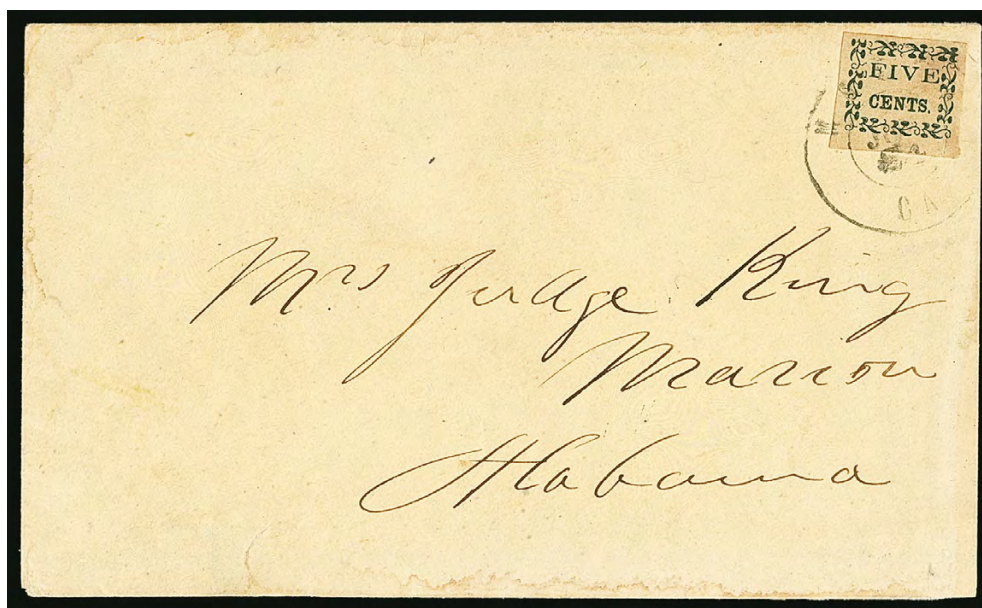 FIVE
CENTS.
GA
Mrs Judge King
Marion
Alabama